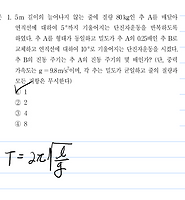 1. 5m 길이의 늘어나지 않는 줄에 질량 80kg인 추 A를 매달아
연직선에 대하여 5°까지 기울이는 단진자운동을 반복하도록
하였다. 추 A를 형태가 동일하고 밀도가 추 A의 0.25배인 추 B로
교체하고 연직선에 대하여 10°로 기울이는 단진자운동을 시켰다.
추 B의 진동 주기는 추 A의 진동 주기의 몇 배인가? (단, 중력
가속도는 g = 9.8m/s²이며, 각 추는 밀도가 균일하고 줄의 질량과
모든 저항은 무시한다)
① 1
② 2
③ 4
④ 8
T = 2π√(ℓ/g)